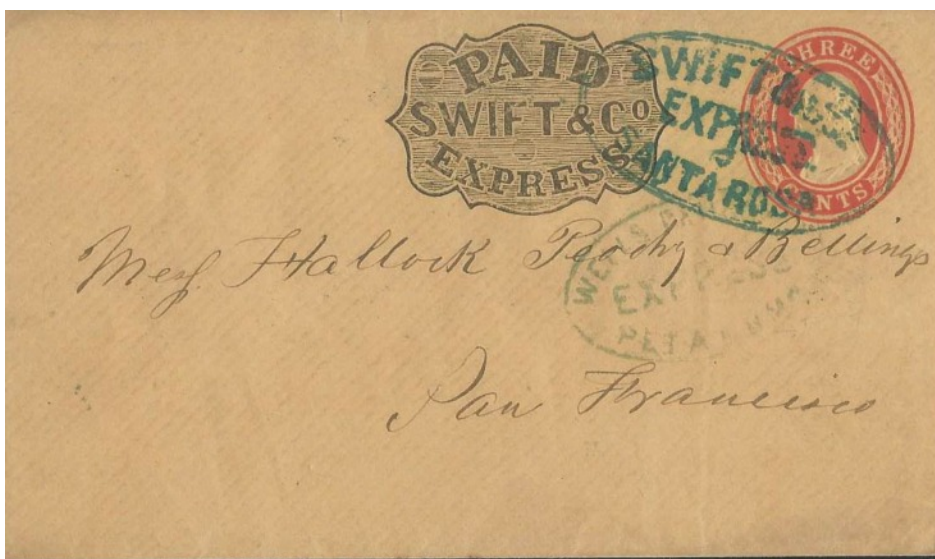 PAID
SWIFT & Co
EXPRESS
SWIFT & CO'S
EXPRESS
SANTA ROSA
THREE
CENTS
WELLS
EXPRESS
PETALUMA
Mess Hallock Peachy & Bellings
San Francisco